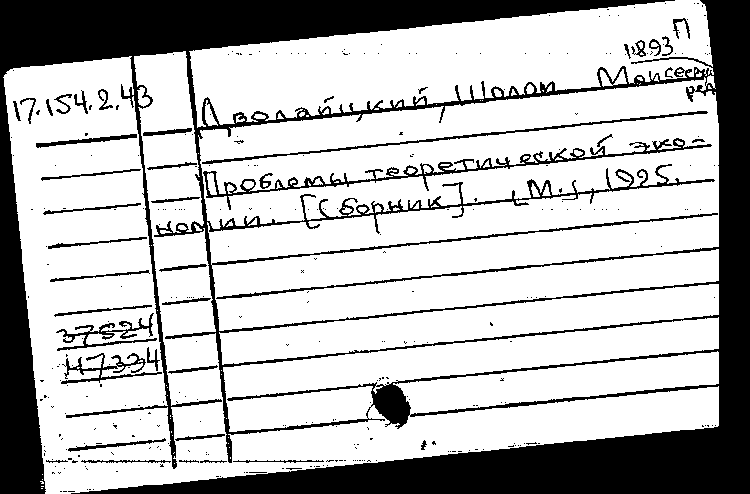 П
1893
17.154.2.43
Дволайцкий, Шолом Моисеевич
ред
Проблемы теоретической эко-
номии. [Сборник]. [М.], 1925.
37824
Н7334